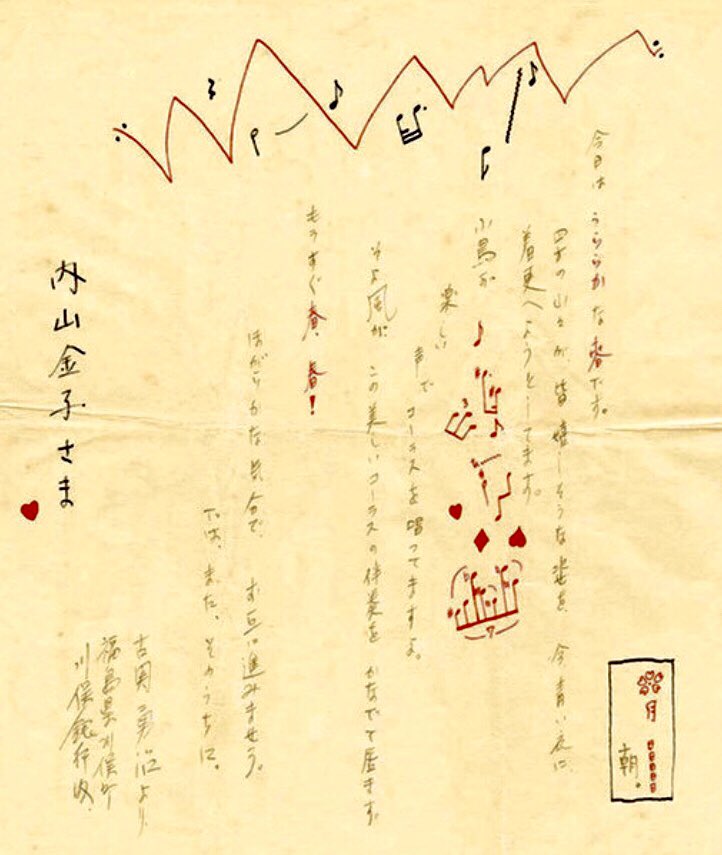 月
朝。
今日は うららかな春です。
四方の山々が 皆 嬉しそうな姿を 今 青い衣に
着更へようとしてます。
小鳥が
楽しい
声で コーラスを唱ってますよ。
そよ風が、この美しいコーラスの伴奏を かなでて居ます。
もうすぐ春、春!
ほがらかな気分で、お互に進みませう。
では、また、そのうちに。
古関勇治より
福島県川俣町
川俣銀行内、
内山金子さま